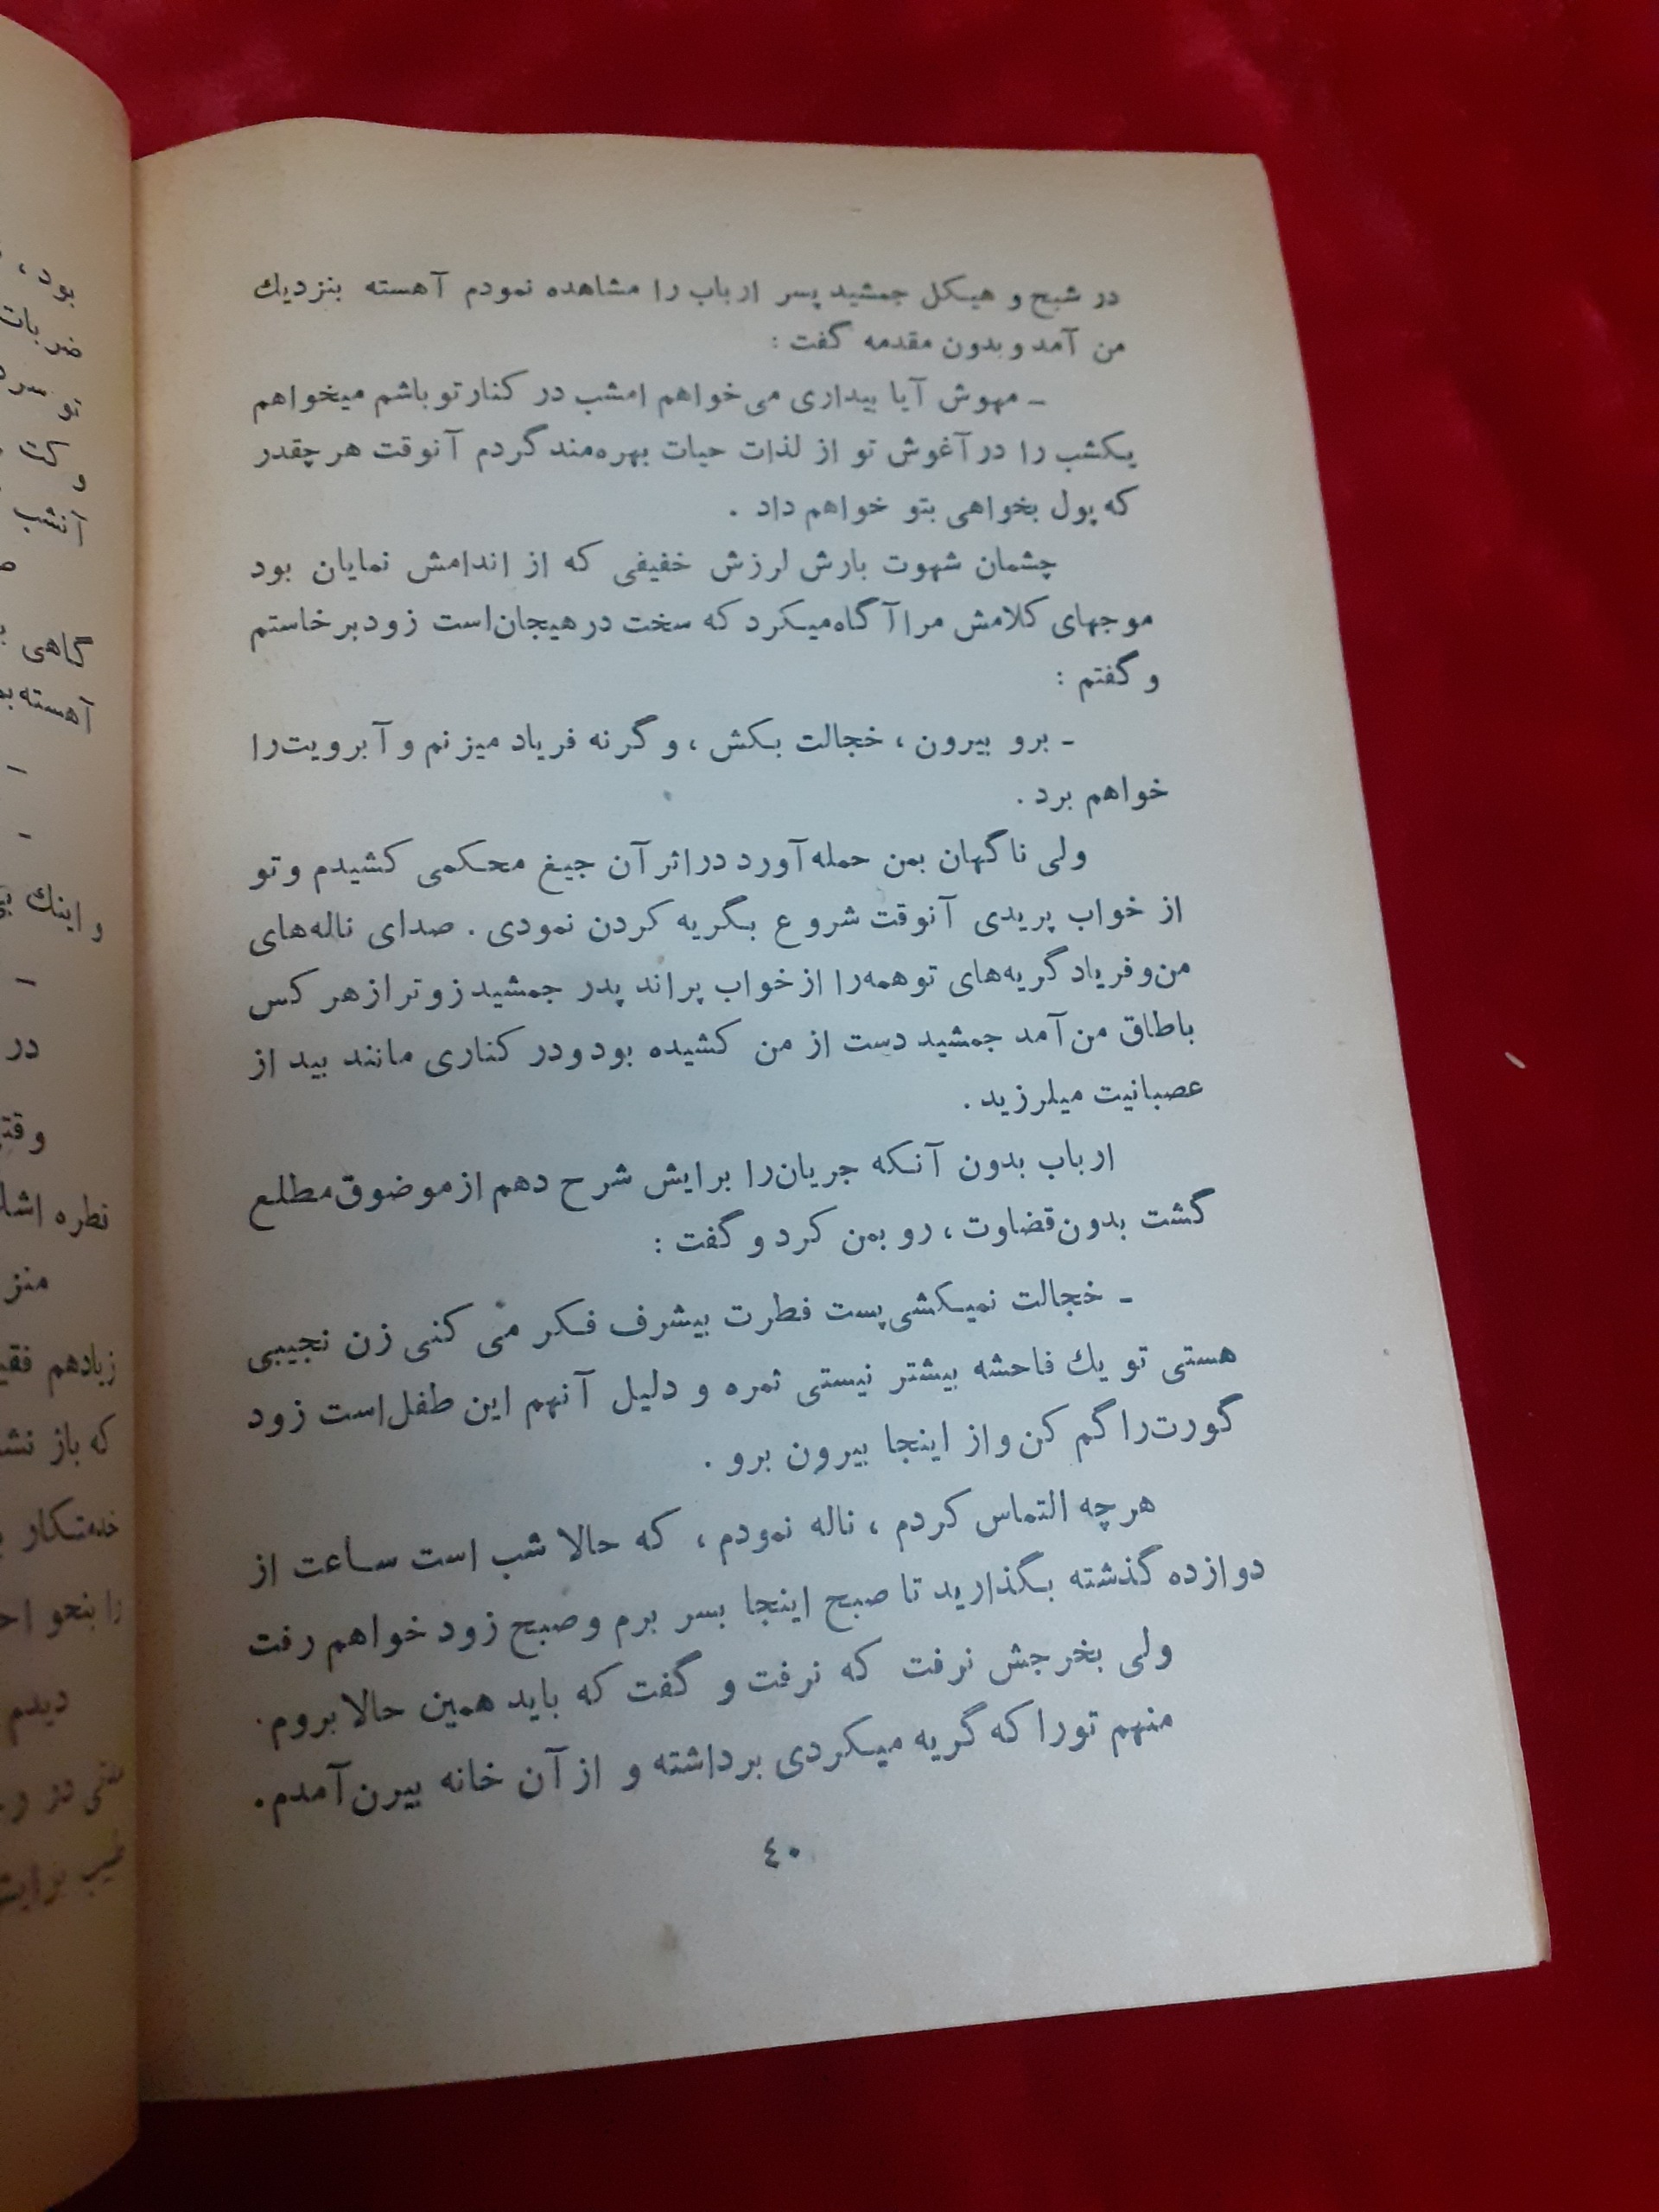 در شبح و هیکل جمشید پسر ارباب را مشاهده نمودم آهسته بنزدیك
من آمد و بدون مقدمه گفت :
ـ مهوش آیا بیداری می‌خواهم امشب در کنار تو باشم میخواهم
یکشب را در آغوش تو از لذات حیات بهره‌مند گردم آنوقت هر چقدر
که پول بخواهی بتو خواهم داد .
چشمان شهوت بارش لرزش خفیفی که از اندامش نمایان بود
موجهای کلامش مرا آگاه میکرد که سخت در هیجان است زود برخاستم
و گفتم :
ـ برو بیرون ، خجالت بکش ، و گرنه فریاد میزنم و آبرویت را
خواهم برد .
ولی ناگهان بمن حمله آورد در اثر آن جیغ محکمی کشیدم و تو
از خواب پریدی آنوقت شروع بگریه کردن نمودی . صدای ناله‌های
من و فریاد گریه‌های تو همه را از خواب پراند پدر جمشید زوتر از هر کس
باطاق من آمد جمشید دست از من کشیده بود و در کناری مانند بید از
عصبانیت میلرزید .
ارباب بدون آنکه جریان را برایش شرح دهم از موضوق مطلع
گشت بدون قضاوت ، رو بمن کرد و گفت :
ـ خجالت نمیکشی پست فطرت بیشرف فکر می کنی زن نجیبی
هستی تو یك فاحشه بیشتر نیستی ثمره و دلیل آنهم این طفل است زود
گورت را گم کن و از اینجا بیرون برو .
هر چه التماس کردم ، ناله نمودم ، که حالا شب است ساعت از
دوازده گذشته بگذارید تا صبح اینجا بسر برم و صبح زود خواهم رفت
ولی بخرجش نرفت که نرفت و گفت که باید همین حالا بروم .
منهم تو را که گریه میکردی برداشته و از آن خانه بیرن آمدم .
٤٠
بود ،
ضربات
تو سر
و
آنشب
گاهی
آهسته
ـ
ـ
و اینك
ـ
در
منز
زیادهم
که باز
خدمتکار
را بنحو
دیدم